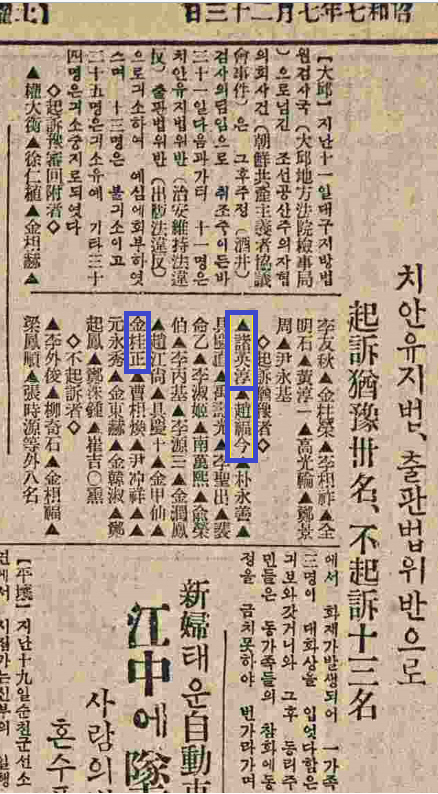 昭和七年七月二十三日
치안유지법、출판법위반으로
起訴猶豫卅名、不起訴十三名
【大邱】지난十一일대구지방법
원검사국(大邱地方法院檢事局
)으로넘긴 조선공산주의자협
의회사건(朝鮮共產主義者協議
會事件)은 그후주정(酒井)
검사의담임으로 취조중이든바
三十一일다음과가티 十一명은
치안유지법위반(治安維持法違
反)출판법위반(出版法違反)
으로긔소하여 예심에회부하엿
스며 十三명은 불긔소이고
二十五명은긔소유예 기타三十
四명은긔소중지로되엿다
◇起訴豫審回附者◇
▲權大衡▲徐仁植▲金垣赫▲
李友秋▲金柱榮▲李相祚▲全
明石▲黃淳一▲高光輪▲鄭景
周▲尹永基
◇起訴猶豫者◇
▲諸英淳▲趙福今▲朴永善▲
具協道▲禹壽光▲李聖出▲裴
俞乙▲李淑姬▲南萬熙▲俞榮
伯▲李丙基▲李源三▲金潤鳳
▲趙江尚▲具慶十▲金甲仙▲
金桂正▲曹相煥▲尹冲祥▲
元永秀▲金東赫▲金韓淑▲鄭
起鳳▲鄭深鍾▲崔吉○熏
◇不起訴者◇
▲李外俊▲柳奇石▲金相福▲
梁鳳順▲張時源等外八名
에서 화재가발생되어 一가족
三명이 대화상을 입엇다함은
긔보와갓거니와 그후 동리주
민들은 동가족들의 참화에동
정을 금치못하야 번가라가며
新婦태운自動車
江中에墜
사람의
혼수
【平壤】지난十九일순천군선소
에서 시집가는신부의 일행